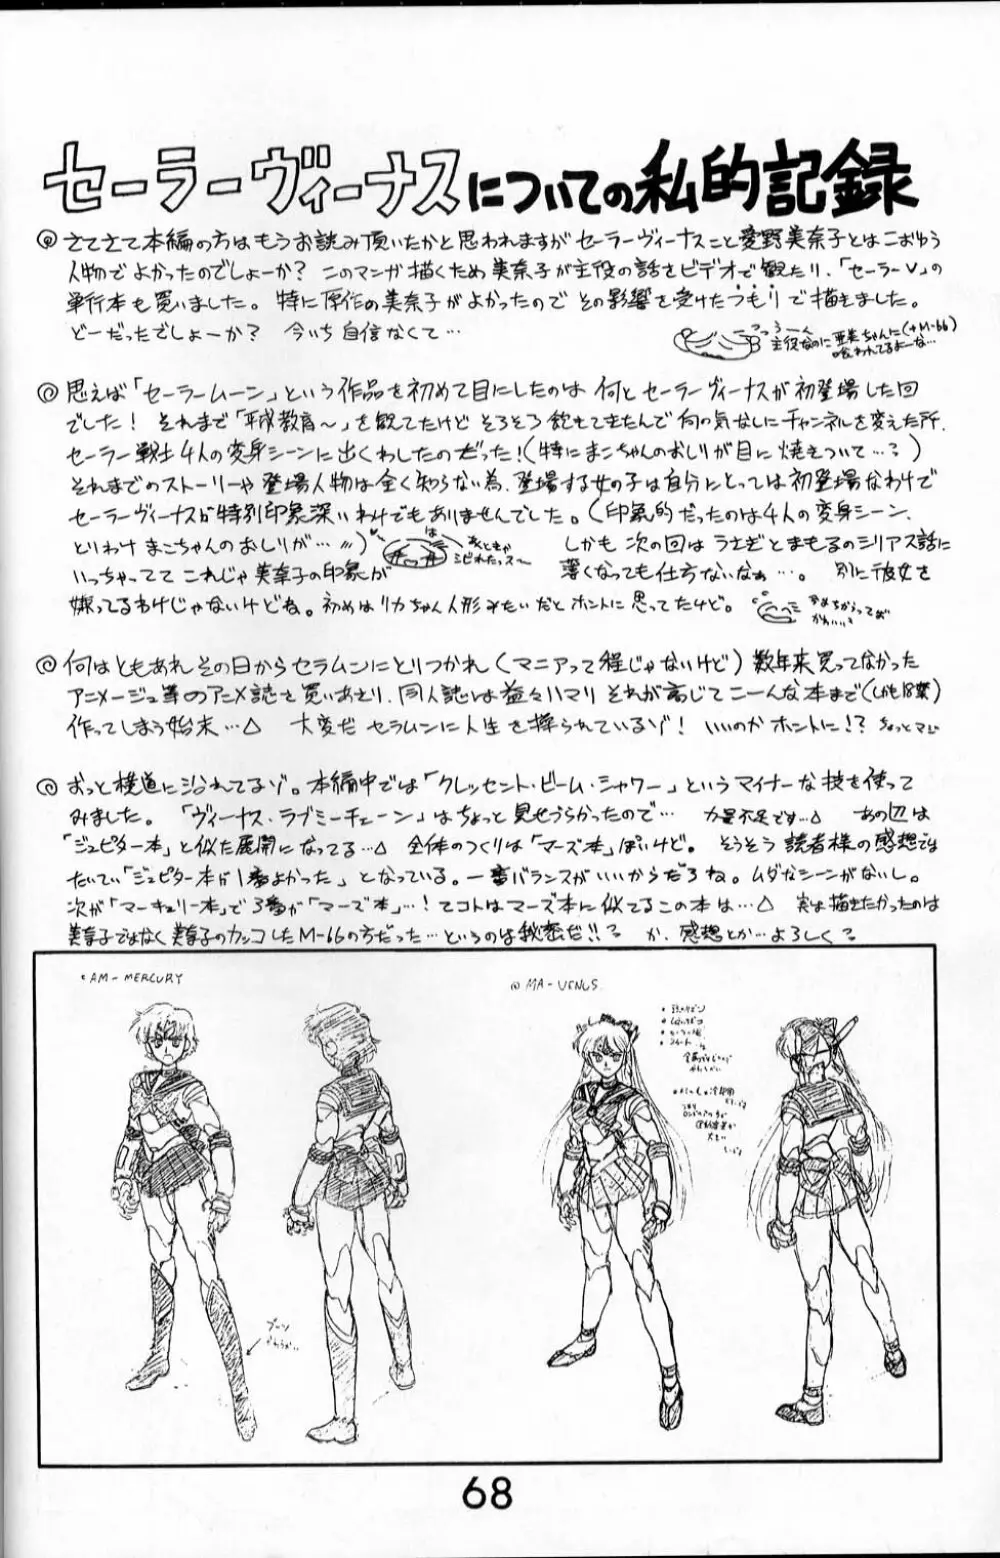 セーラーヴィーナスについての私的記録
さてさて本編の方はもうお読み頂いたかと思われますがセーラーヴィーナスこと愛野美奈子とはこおゆう
人物でよかったのでしょーか? このマンガ描くため美奈子が主役の話をビデオで観たり、「セーラーV」の
単行本も買いました。特に原作の美奈子がよかったので その影響を受けたつもりで描きました。
どーだったでしょーか? 今いち自信なくて…
主役なのに亜美ちゃんに(+M-66)
喰われてるよーな…
思えば「セーラームーン」という作品を初めて目にしたのは 何とセーラーヴィーナスが初登場した回
でした! それまで「平成教育〜」を観てたけど そろそろ飽きてきたんで何の気なしにチャンネルを変えた所、
セーラー戦士4人の変身シーンに出くわしたのだった!(特にまこちゃんのおしりが目に焼きついて…?)
それまでのストーリーや登場人物は全く知らない為、登場する女の子は自分にとっては初登場なわけで
セーラーヴィーナスが特別印象深いわけでもありませんでした。(印象的だったのは4人の変身シーン、
とりわけまこちゃんのおしりが…〃) しかも 次の回は うさぎとまもるのシリアス話に
いっちゃってて これじゃ美奈子の印象が 薄くなっても仕方ないなぁ…。 別に彼女を
嫌ってるわけじゃないけどね。初めはリカちゃん人形みたいだとホントに思ってたけど。
何はともあれ その日からセラムンにとりつかれ(マニアって程じゃないけど)数年来買ってなかった
アニメージュ等のアニメ誌を買いあさり、同人誌には益々ハマり それが高じてこーんな本まで(しかも18禁)
作ってしまう始末…△ 大変だ セラムンに人生を搾られているゾ! いいのかホントに!? ちょっとマジ
おっと横道に沿れてるゾ。本編中では「クレッセント・ビーム・シャワー」というマイナーな技を使って
みました。「ヴィーナス・ラブミーチェーン」はちょっと見せづらかったので… 力量不足です…△ あの辺は
「ジュピター本」と似た展開になってる…△ 全体のつくりは「マーズ本」ぽいけど。そうそう読者様の感想では
だいたい「ジュピター本が1番よかった」となっている。一番バランスがいいからだろね。ムダなシーンがないし。
次が「マーキュリー本」で3番が「マーズ本」…! てコトはマーズ本に似てるこの本は…△ 実は描きたかったのは
美奈子ではなく美奈子のカッコしたM-66の方だった…というのは秘密だ!!? か、感想とか…よろしく?
AM-MERCURY
MA-VENUS
68